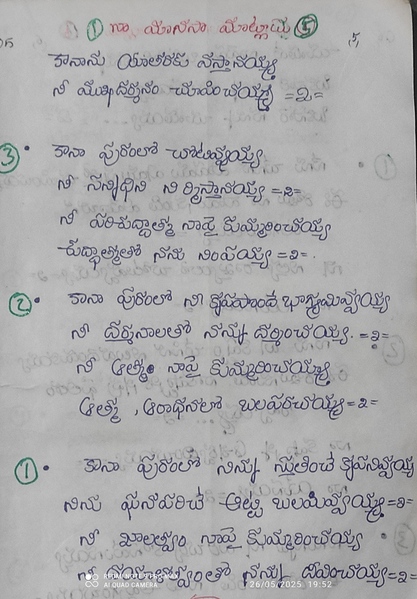 ① నా మానసా మాట్లాడు ⑤
కానాను యాత్రకు వస్తానయ్య
నీ ముఖదర్శనం చూపించయ్య =2=
③ • కానా పురంలో చోటివ్వయ్య
నీ సన్నిధిని నిర్మిస్తానయ్య =2=
నీ పరిశుద్ధాత్మా నాపై కుమ్మరించయ్య
శుద్ధాత్మతో నను నింపయ్య =2=.
② • కానా పురంలో నీ కృపపొందే భాగ్యమివ్వయ్య
నీ దర్శనాలతో నన్ను దర్శించయ్య. =2=
నీ ఆత్మ నాపై కుమ్మరించయ్య
ఆత్మ, ఆరాధనలో బలపరచయ్య =2=
① • కానా పురంలో నిన్ను స్తుతించే కృపనివ్వయ్య
నిను ఘనపరిచే ఆత్మ బలమివ్వయ్య =2=
నీ నాపై కుమ్మరించయ్య
నీ తో నన్ను దీవించయ్య =2=
REDMI NOTE
AI QUAD CAMERA
26/05/2025 19:52